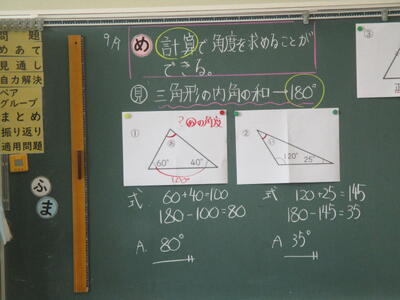 問題
めあて
見通し
自力解決
ペア
グループ
まとめ
振り返り
適用問題
ふ
ま
9月
め 計算で角度を求めることが
できる。
見 三角形の内角の和→180°
① ?あの角度
あ
60° 40°
100°
式 60+40=100
180-100=80
A. 80°
②
い
120° 25°
式 120+25=145
180-145=35
A 35°
③